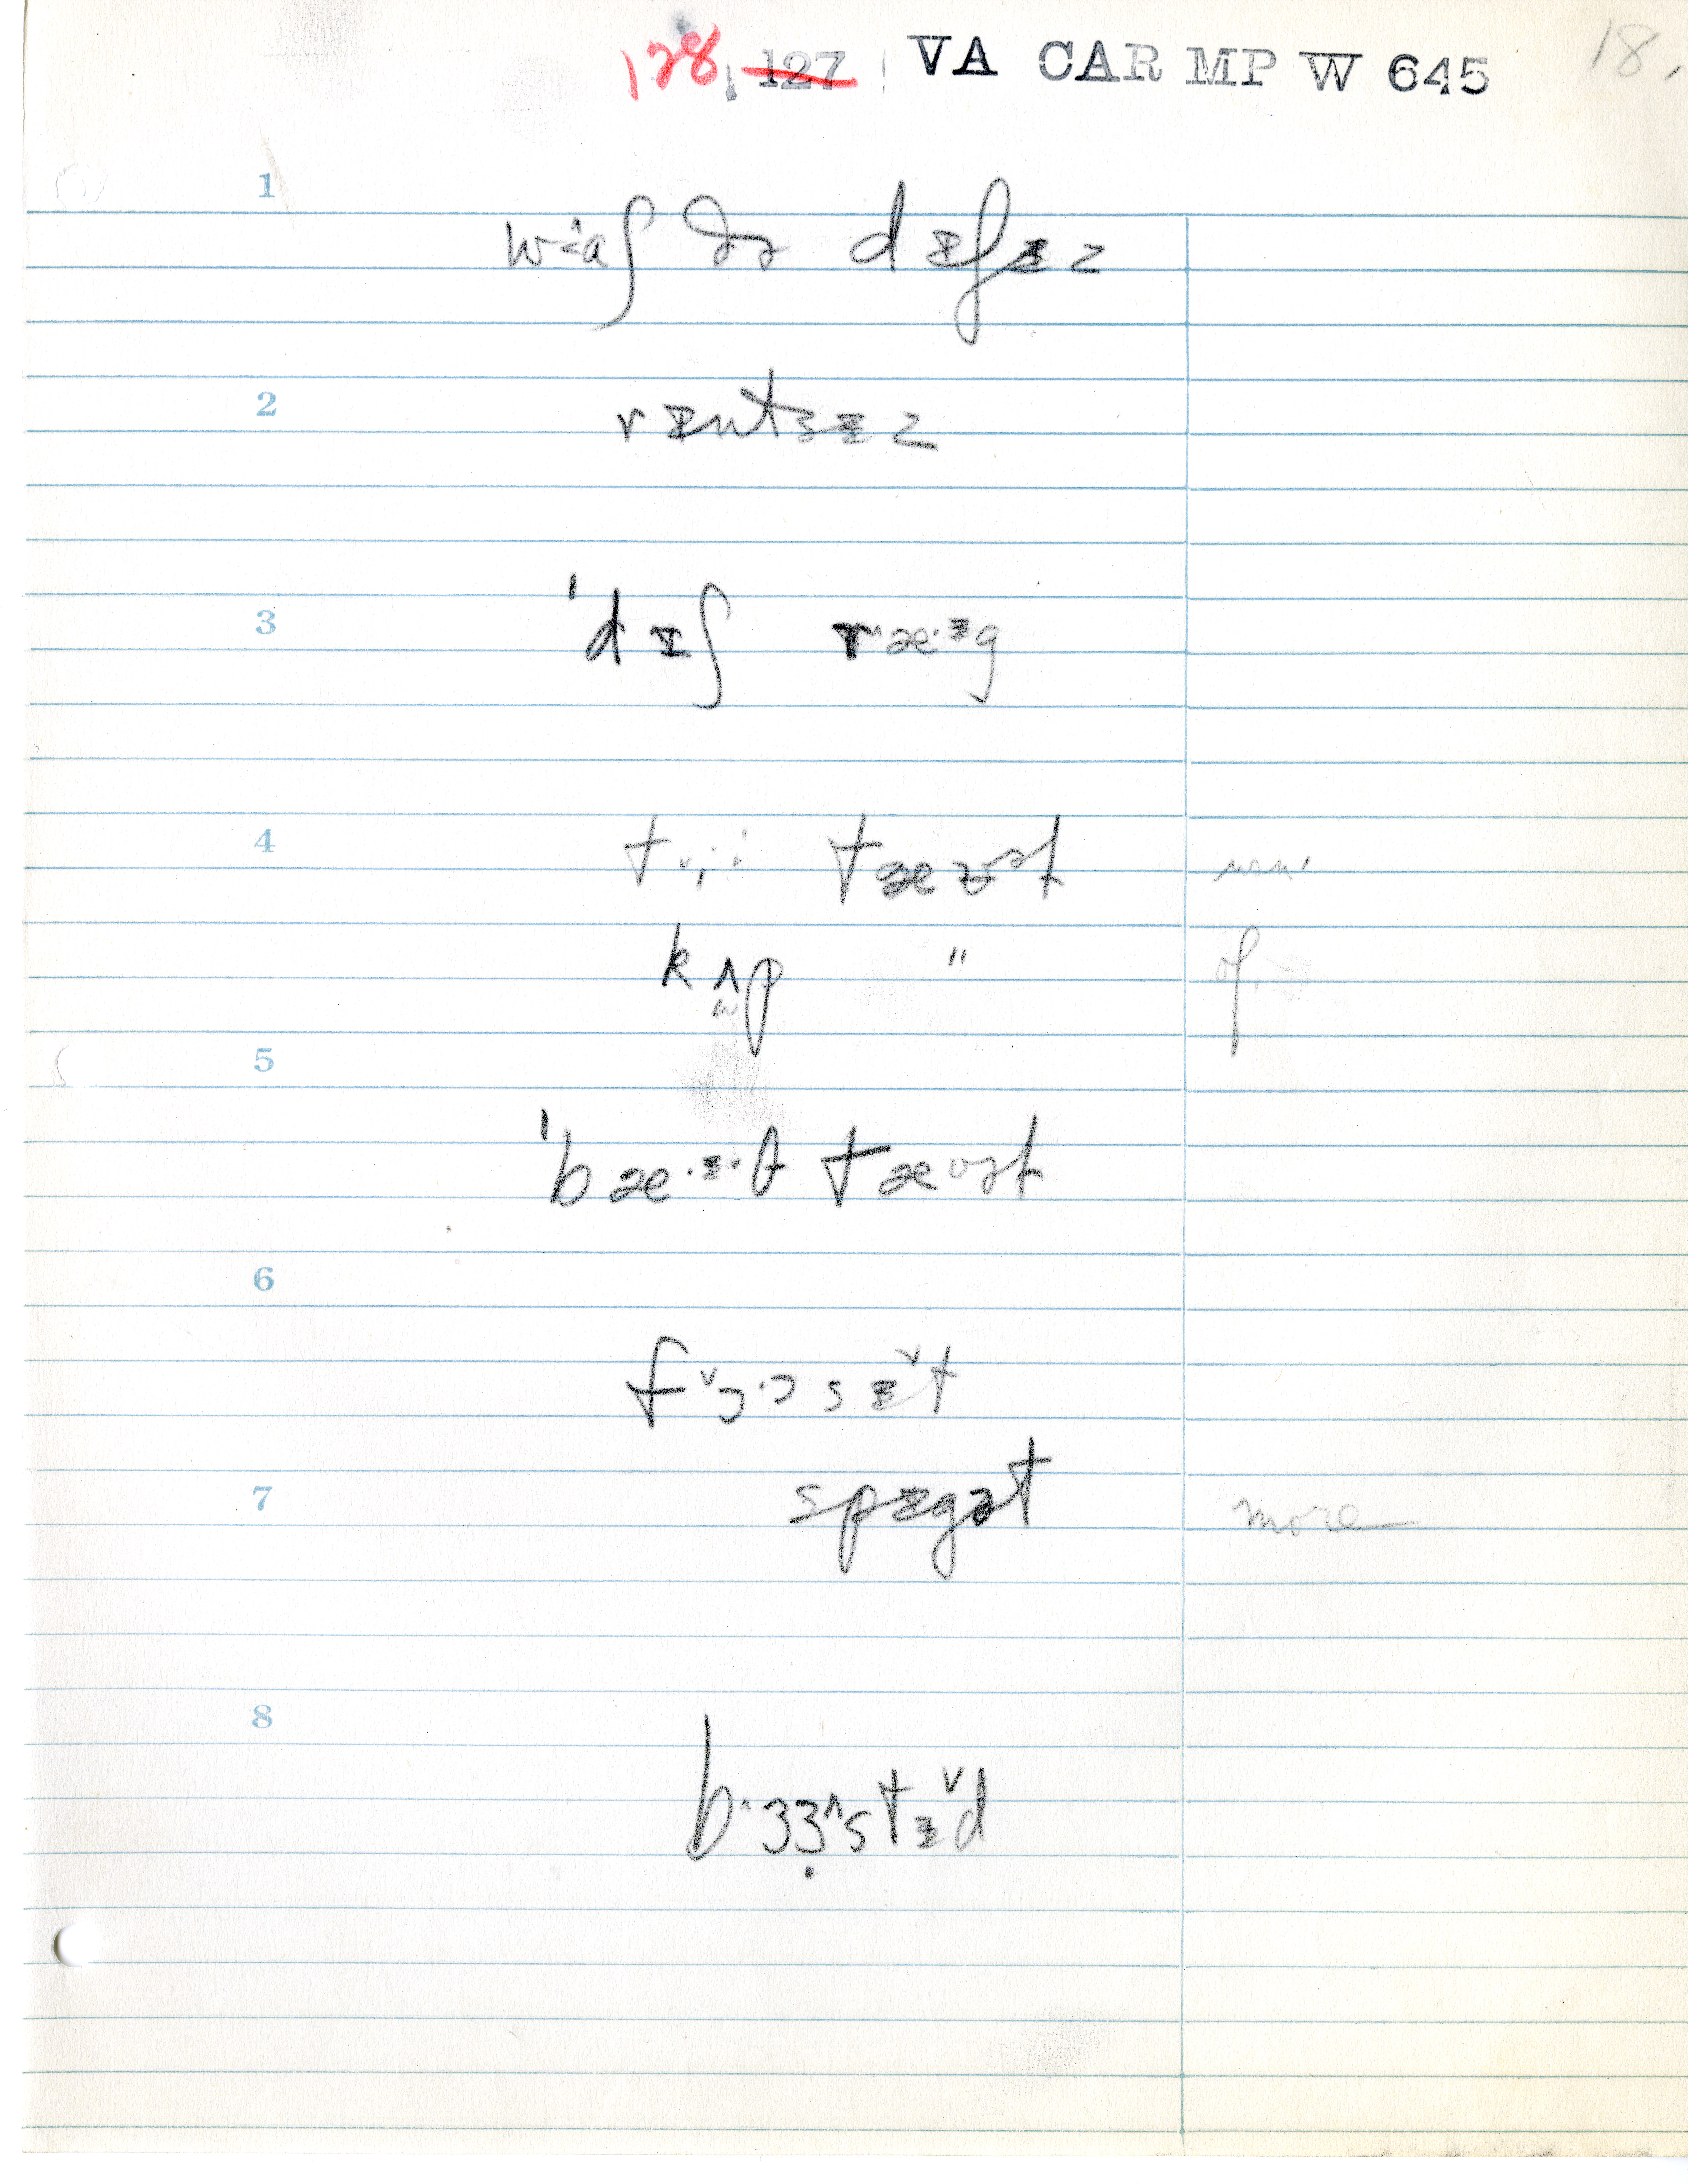 128. 127 VA CAR MP W 645 18.
1
wɑʃ ðə dɪʃɪz
2
rɪntsɪz
3
ˈdɪʃ ræ·ɪg
4
tæʊət
kʌp "
of.
5
ˈbæ·ɪ·θ tæʊət
6
fɔ·ɔsɪ˅t
7
spɪgət more
8
b˄ɜɜ̣˄stɪ˅d